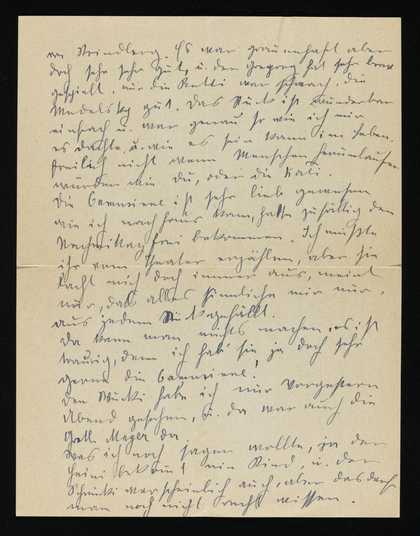 von Strindberg. Es war grauenhaft aber
doch sehr sehr gut, u. der Gregory hat sehr brav
gespielt, nur die Ratti war schwach, die
Medelsky gut. Das Stück ist wunderbar
einfach u. war genau so wie ich mir
es dachte, u. wie es sein kann im Leben.
freilich nicht wenn Menschen
würden wie Du, oder die Kali.
Die ist sehr lieb gewesen
wie ich nach Haus kam, hatte zufällig den
Nachmittag frei bekommen. Ich mußte
ihr vom Theater erzählen, aber sie
lacht mich doch immer aus, meint
nur, daß alles Sinnliche mir nur,
aus jedem Stück gefällt.
Da kann man nichts machen, es ist
traurig, denn ich hab' sie ja doch sehr
gerne die
Den Wucki habe ich nur vorgestern
Abend gesehen, u. da war auch die
Mayer da
Was ich noch sagen wollte, ja der
Heini bekommt ein Kind, u. der
Schmucki warscheinlich auch, aber das darf
man noch nicht wissen.